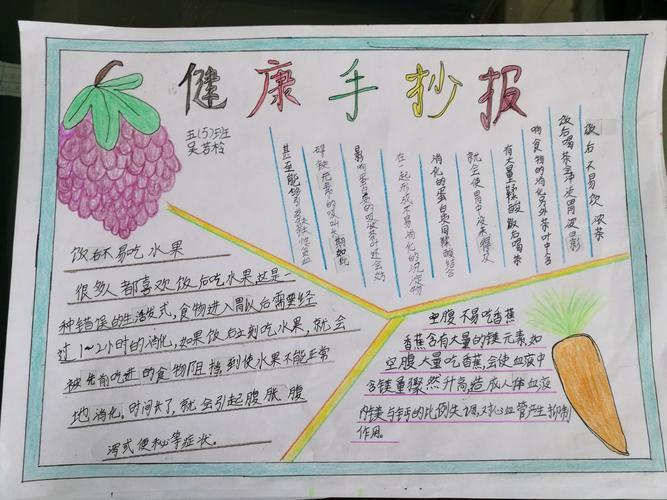 健康手抄报
五(5)班
吴若柃
饭后不易饮浓茶
饭后喝茶会冲淡胃液影
响食物的消化另外茶叶中含
有大量鞣酸饭后喝茶
就会使胃中没来
消化的蛋白质同鞣酸结合
在一起形成不易消化的沉淀物
影响蛋白质的吸收茶叶还会妨
碍铁元素的吸收长期如此
甚至能够引发缺铁性贫血
饭后不易吃水果
很多人都喜欢饭后吃水果这是一
种错误的生活方式,食物进入胃以后需要经
过1~2小时的消化,如果饭后立刻吃水果,就会
被先前吃进的食物阻挡到使水果不能正常
地消化。时间长了,就会引起腹胀腹
泻或便秘等症状。
空腹不易吃香蕉
香蕉含有大量的镁元素,如
空腹大量吃香蕉,会使血液中
含镁量骤然升高造成人体血液
内镁与钙的比例失调,对心血管产生抑制
作用。